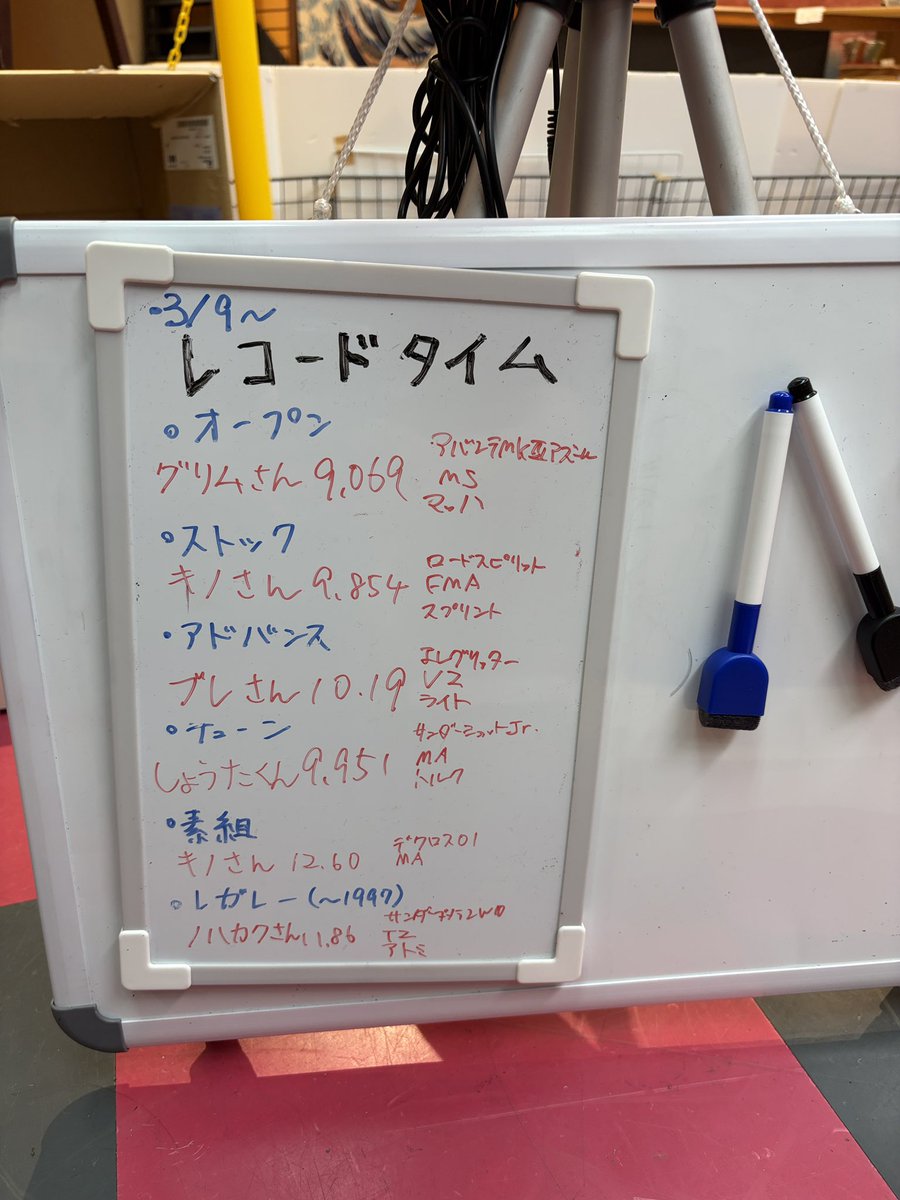 ・3/9〜
レコードタイム
・オープン
グリムさん 9,069
アバンテMkⅢアズール
MS
マッハ
・ストック
キノさん 9.854
ロードスピリット
FMA
スプリント
・アドバンス
ブレさん 10.19
エレグリッター
VZ
ライト
・チューン
しょうたくん 9.951
サンダーショットJr.
MA
トルク
・素組
キノさん 12.60
デクロス01
MA
・レガレー(〜1997)
ハカクさん 11.86
TZ
アトミ